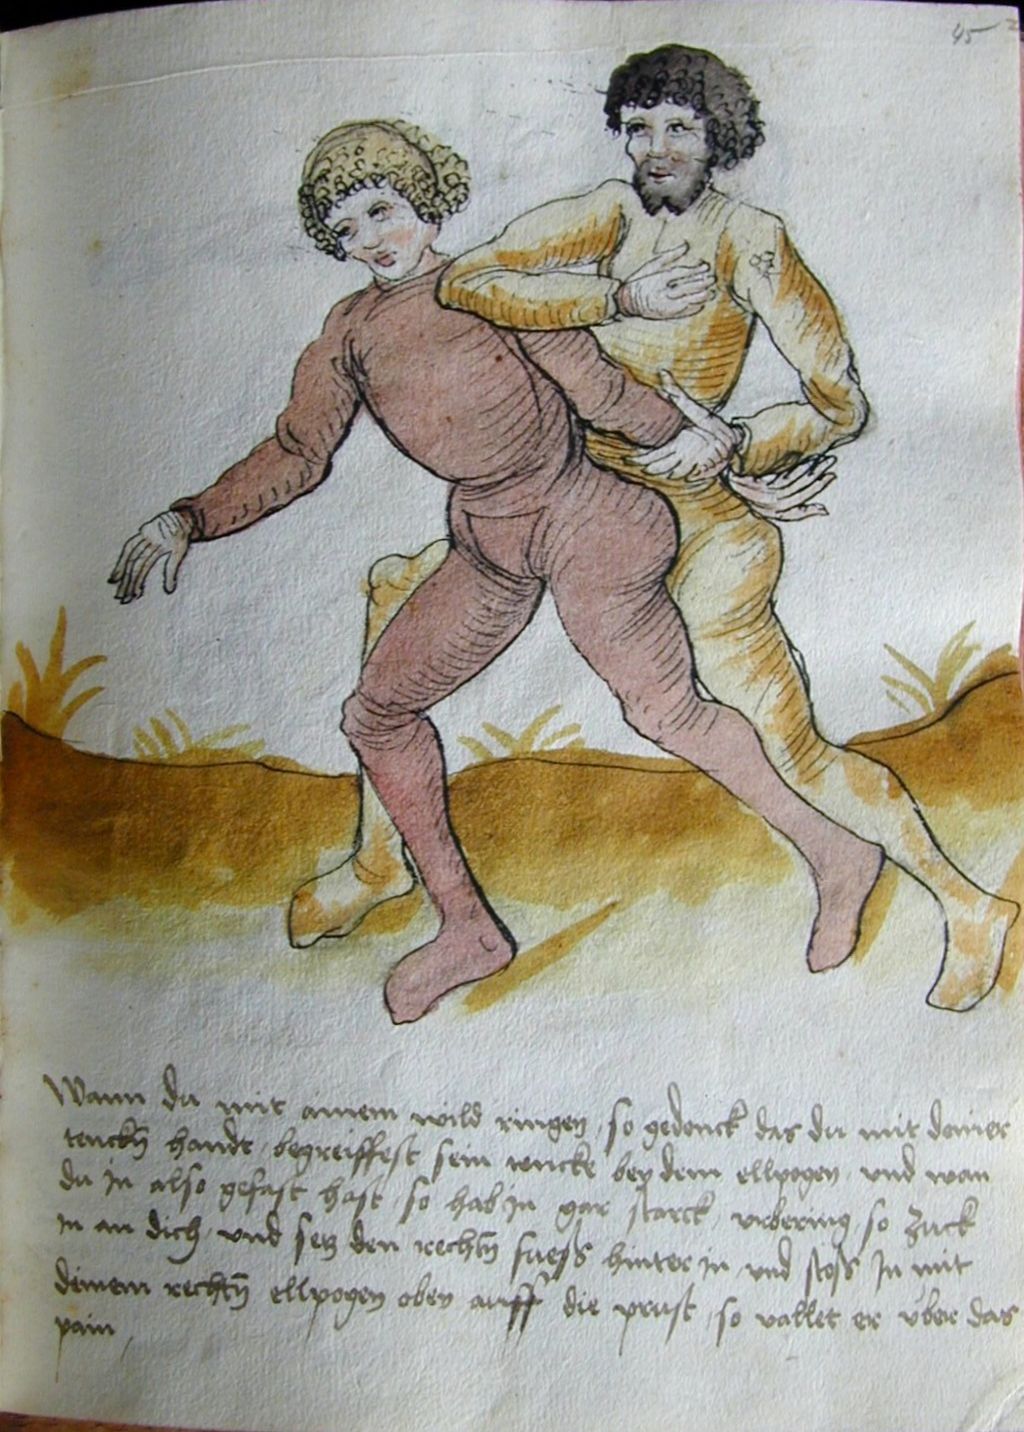 45 2
Wann du mit ainem wild ringen, so gedenck das du mit deiner
tenckñ handt begreiffest sein rencke bey dem ellpogen, und wan
du jn also gefast hast, so hab jn gar starck, urbering so zuck
jn an dich, und setz den rechtñ fuess hinter jn, und stoss jn mit
deinem rechtñ ellpogen oben auff die prust, so vallet er über das
pain,